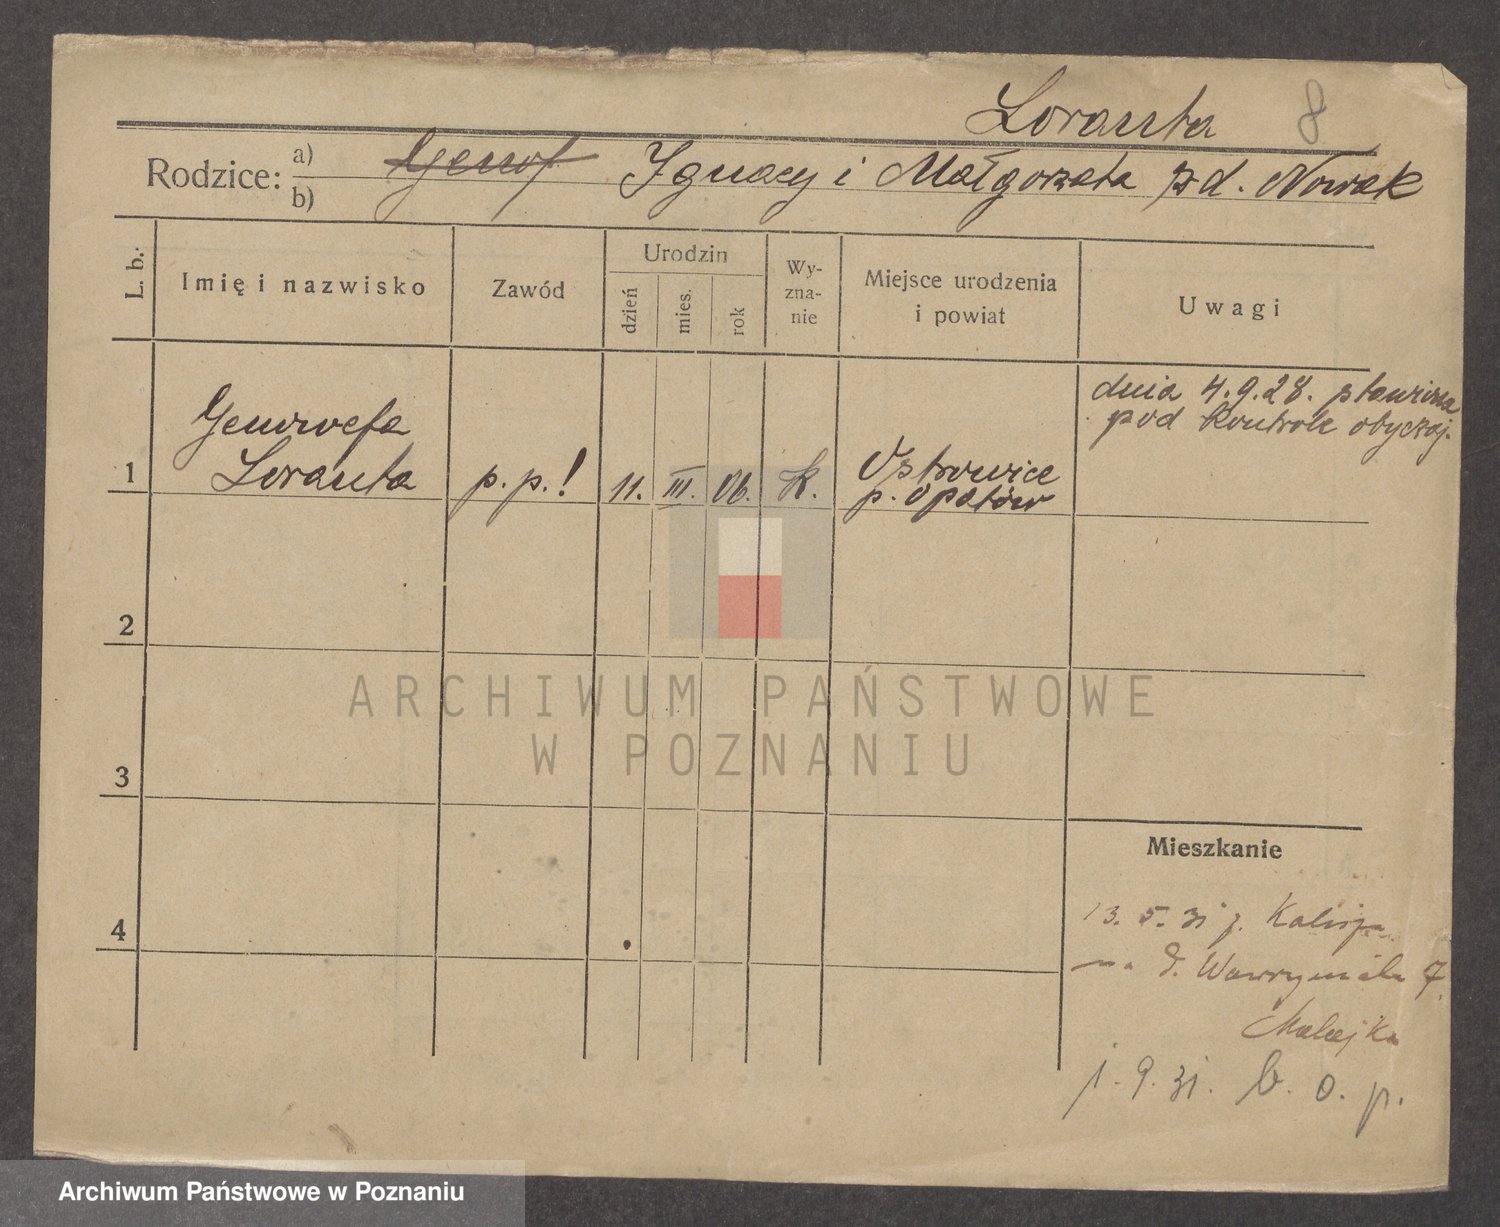 Loranta 8
Rodzice: a) Genof Ignacy i Małgorzata zd. Nowak
b)
L. b.: Imię i nazwisko Zawód Urodzin dzień mies. rok Wy-zna-nie Miejsce urodzenia i powiat Uwagi
dnia 4.9.28. stawiona
pod kontrole obyczaj.
1 Genowefa Loranta p. p.! 11. III. 06. k. Ostrowice p. Opatów
2
3
4
ARCHIWUM PAŃSTWOWE
W POZNANIU
Mieszkanie
13. 5. 31 z. Kalisza
na d. Wawrzyniaka 7
Matejka
1. 9. 31. b. o. p.
Archiwum Państwowe w Poznaniu